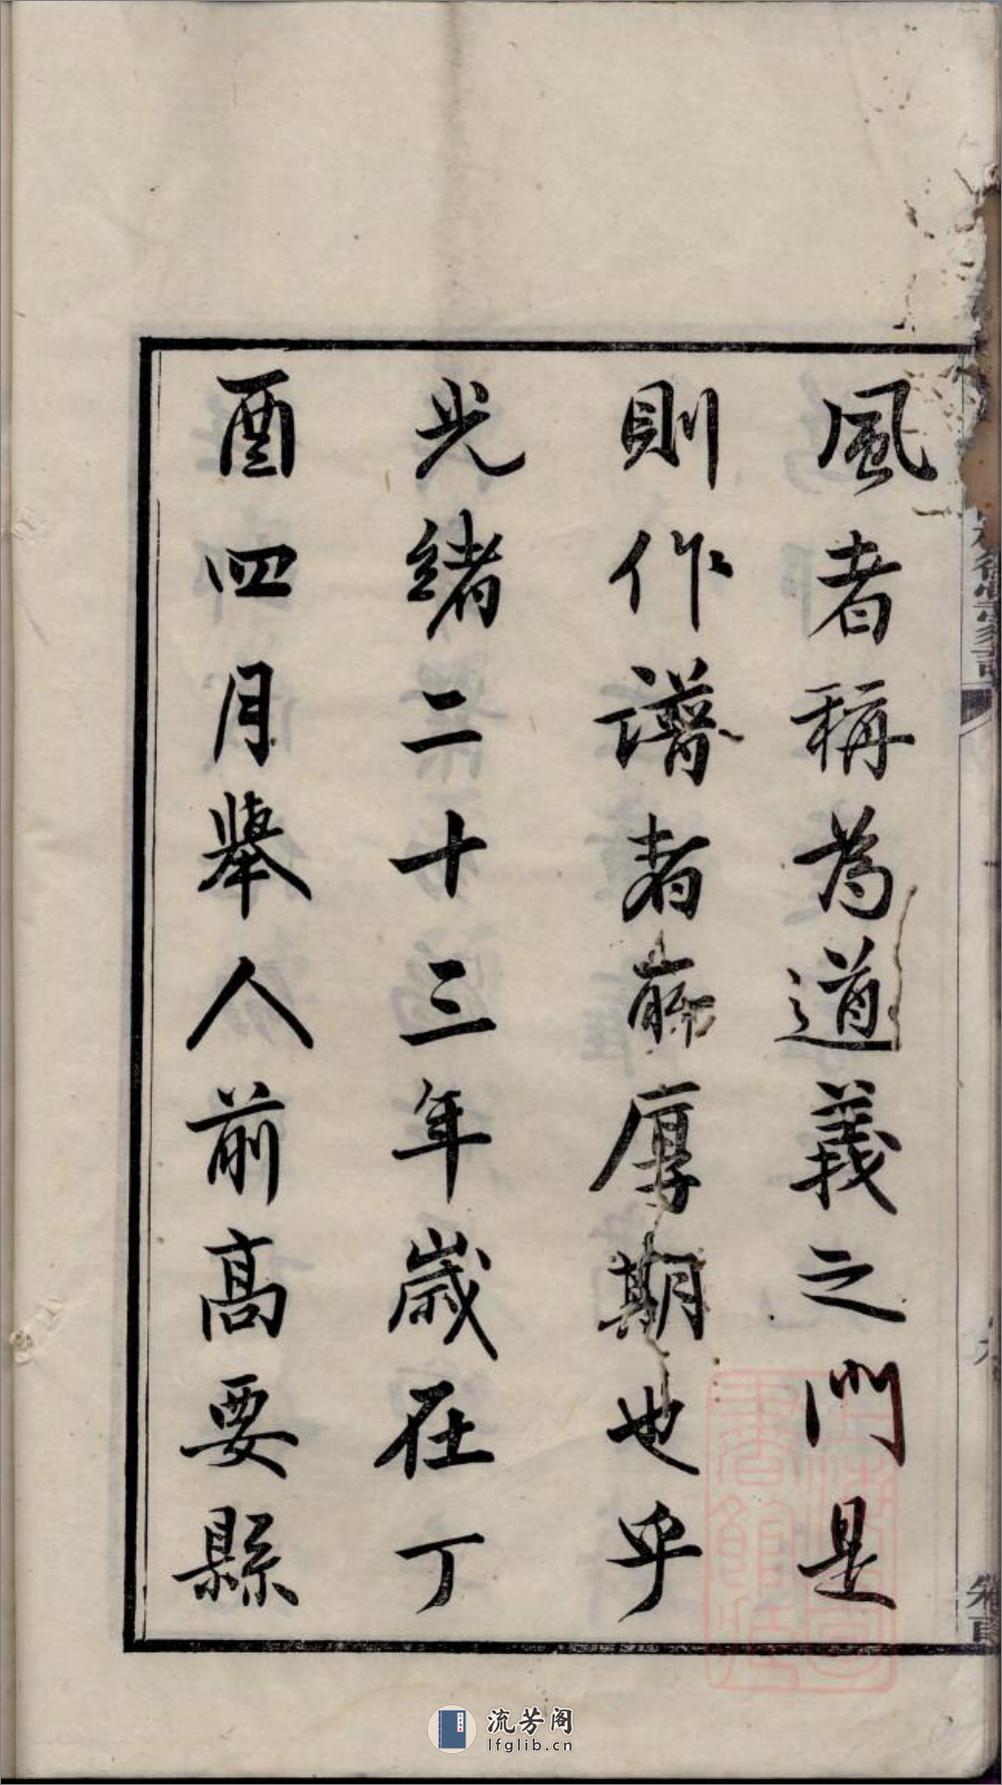 風者稱為道義之門是
則作譜者所厚期也乎
光緒二十三年歲在丁
酉四月舉人前高要縣
卷首
流芳阁
lfglib.cn